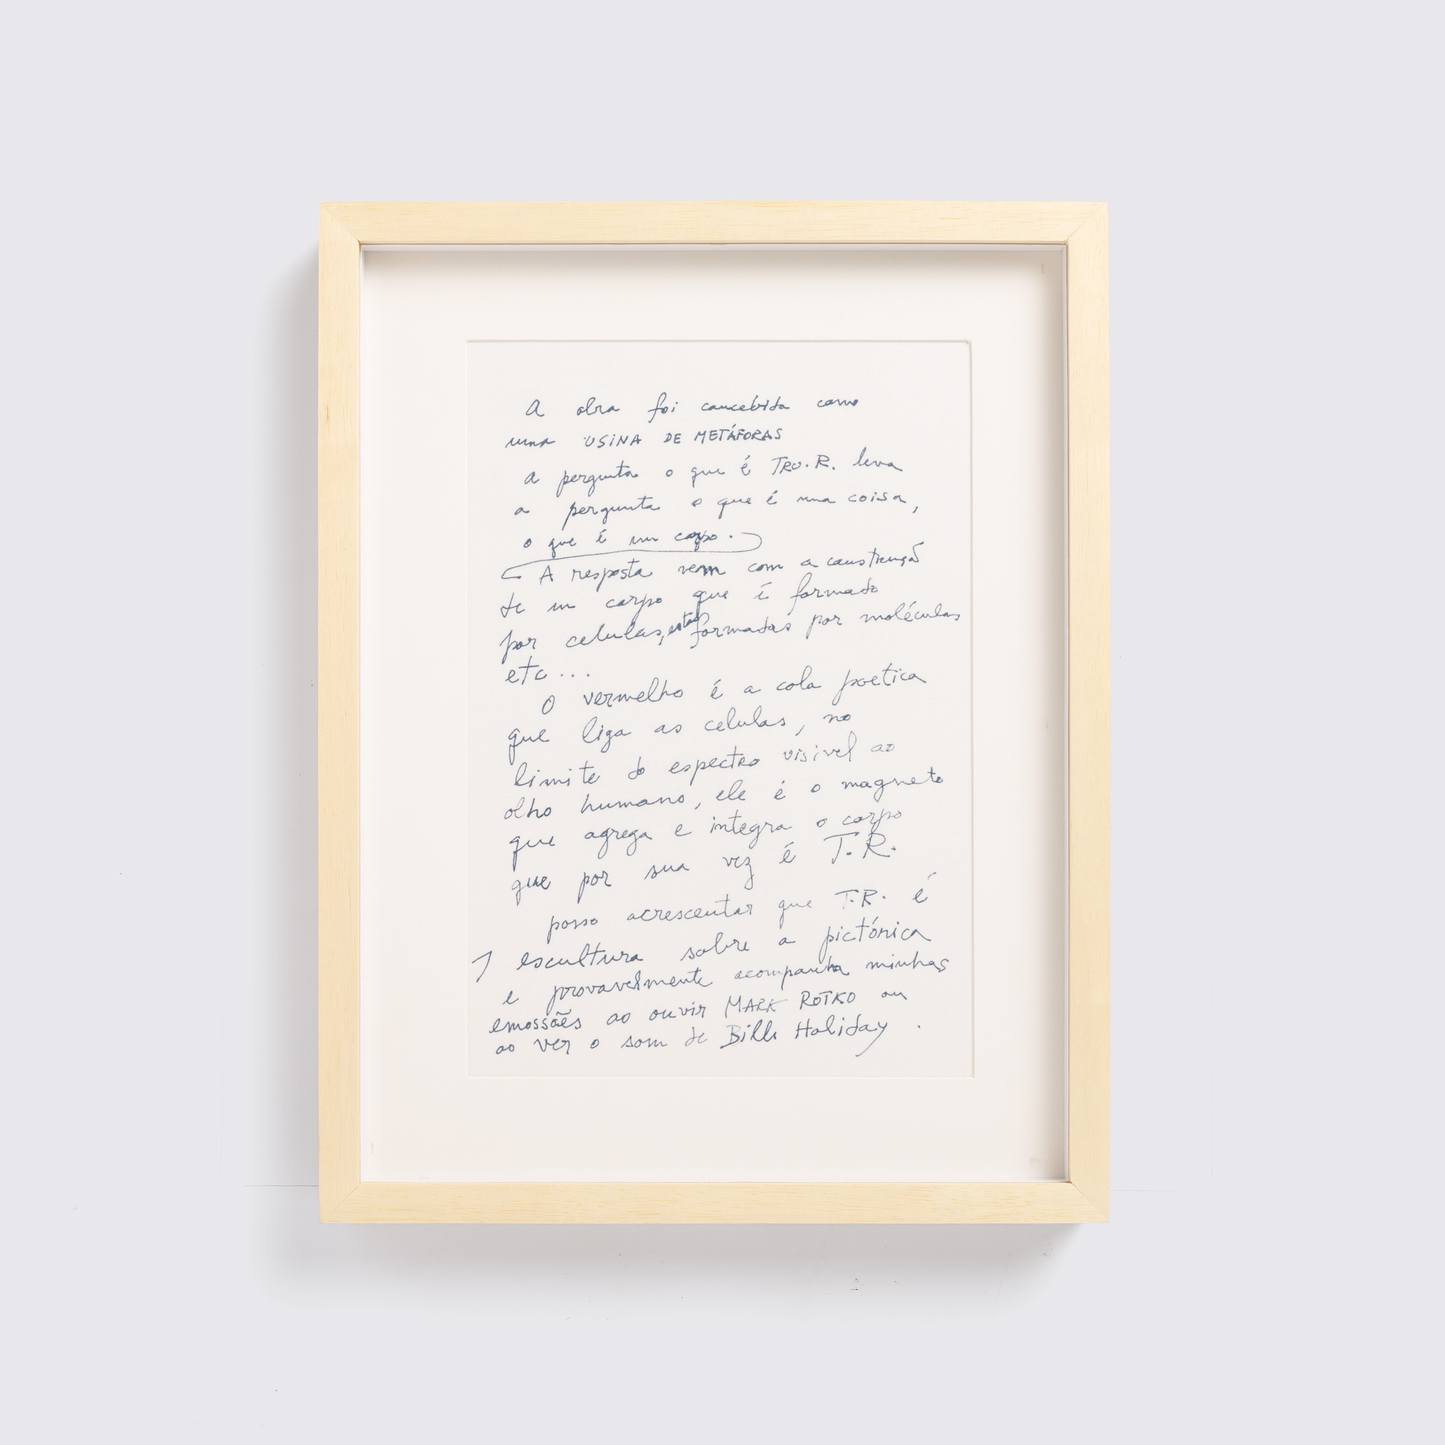 A obra foi concebida como
uma USINA DE METÁFORAS
a pergunta o que é TRU.R. leva
a pergunta o que é uma coisa,
o que é um corpo.
A resposta vem com a construção
de um corpo que é formado
por celulas, estas formadas por moléculas
etc ...
O vermelho é a cola poetica
que liga as celulas, no
limite do espectro visivel ao
olho humano, ele é o magneto
que agrega e integra o corpo
que por sua vez é T.R.
posso acrescentar que T.R. é
escultura sobre a pictórica
e provavelmente acompanha minhas
emossões ao ouvir MARK ROTKO ou
ao ver o som de Bille Holiday.